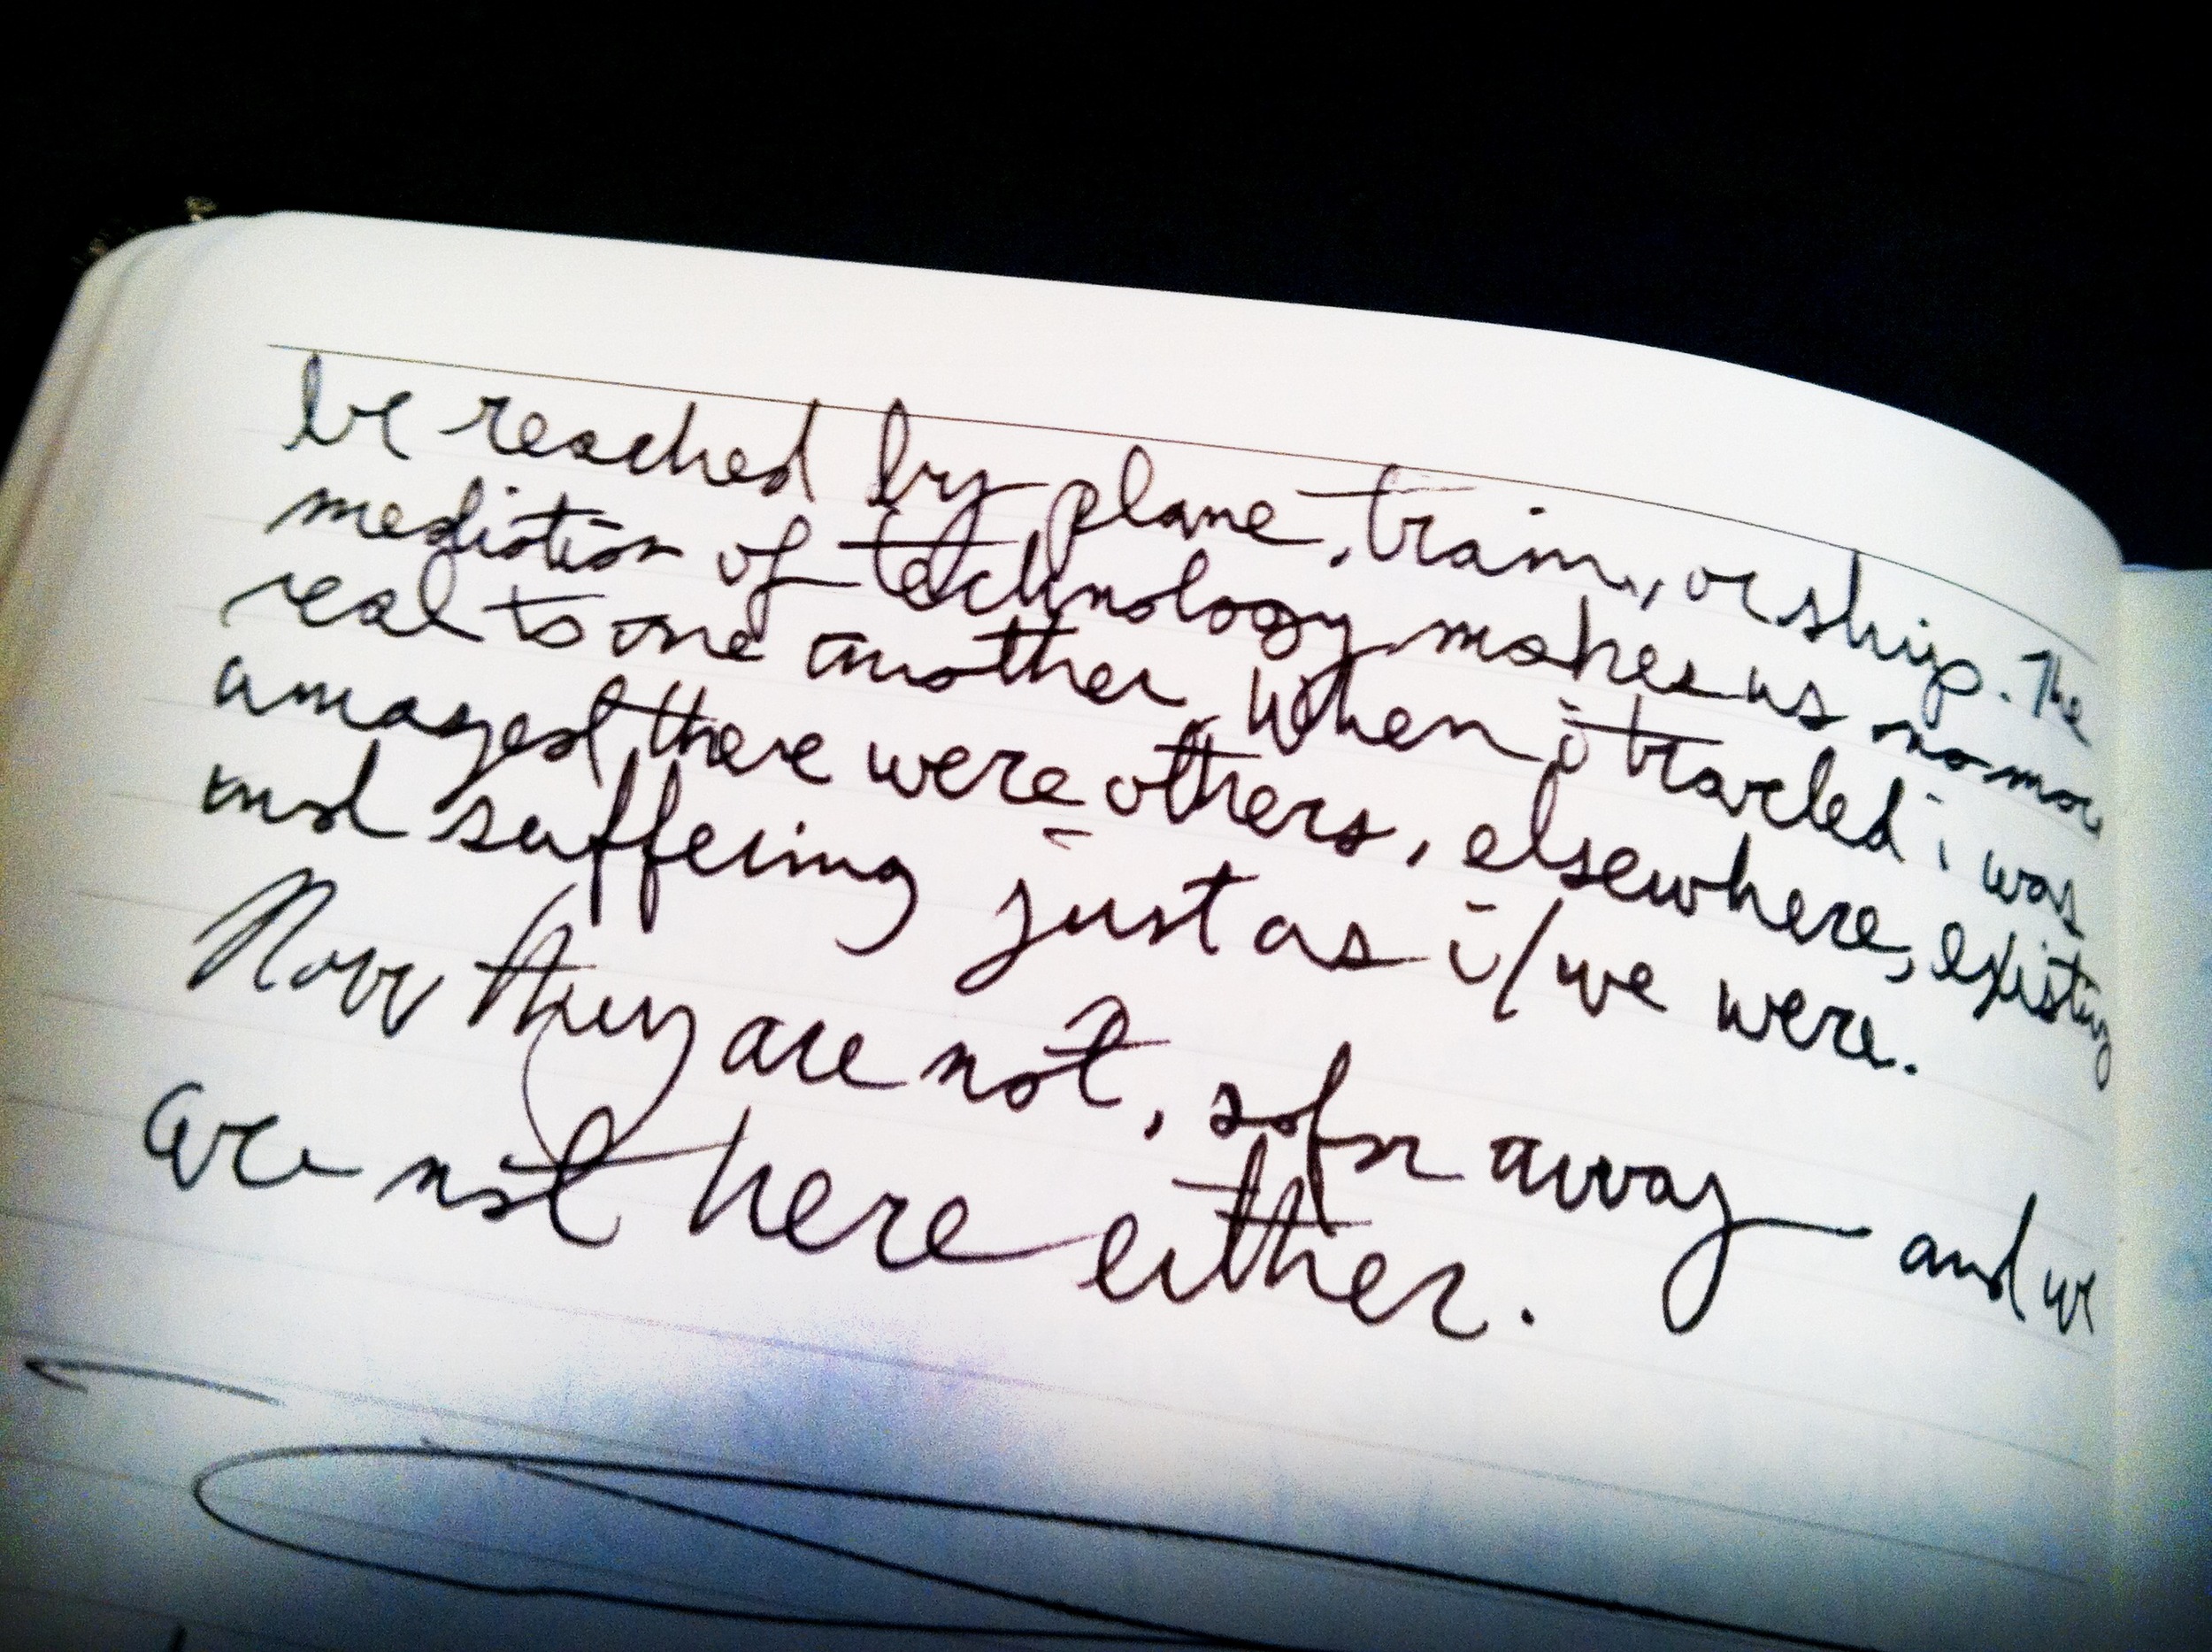 be reached by plane, train, or ship. The
mediation of technology makes us no more
real to one another. When i traveled i was
amazed there were others, elsewhere, existing
and suffering just as i/we were.
Now they are not, so far away and we
are not here either.